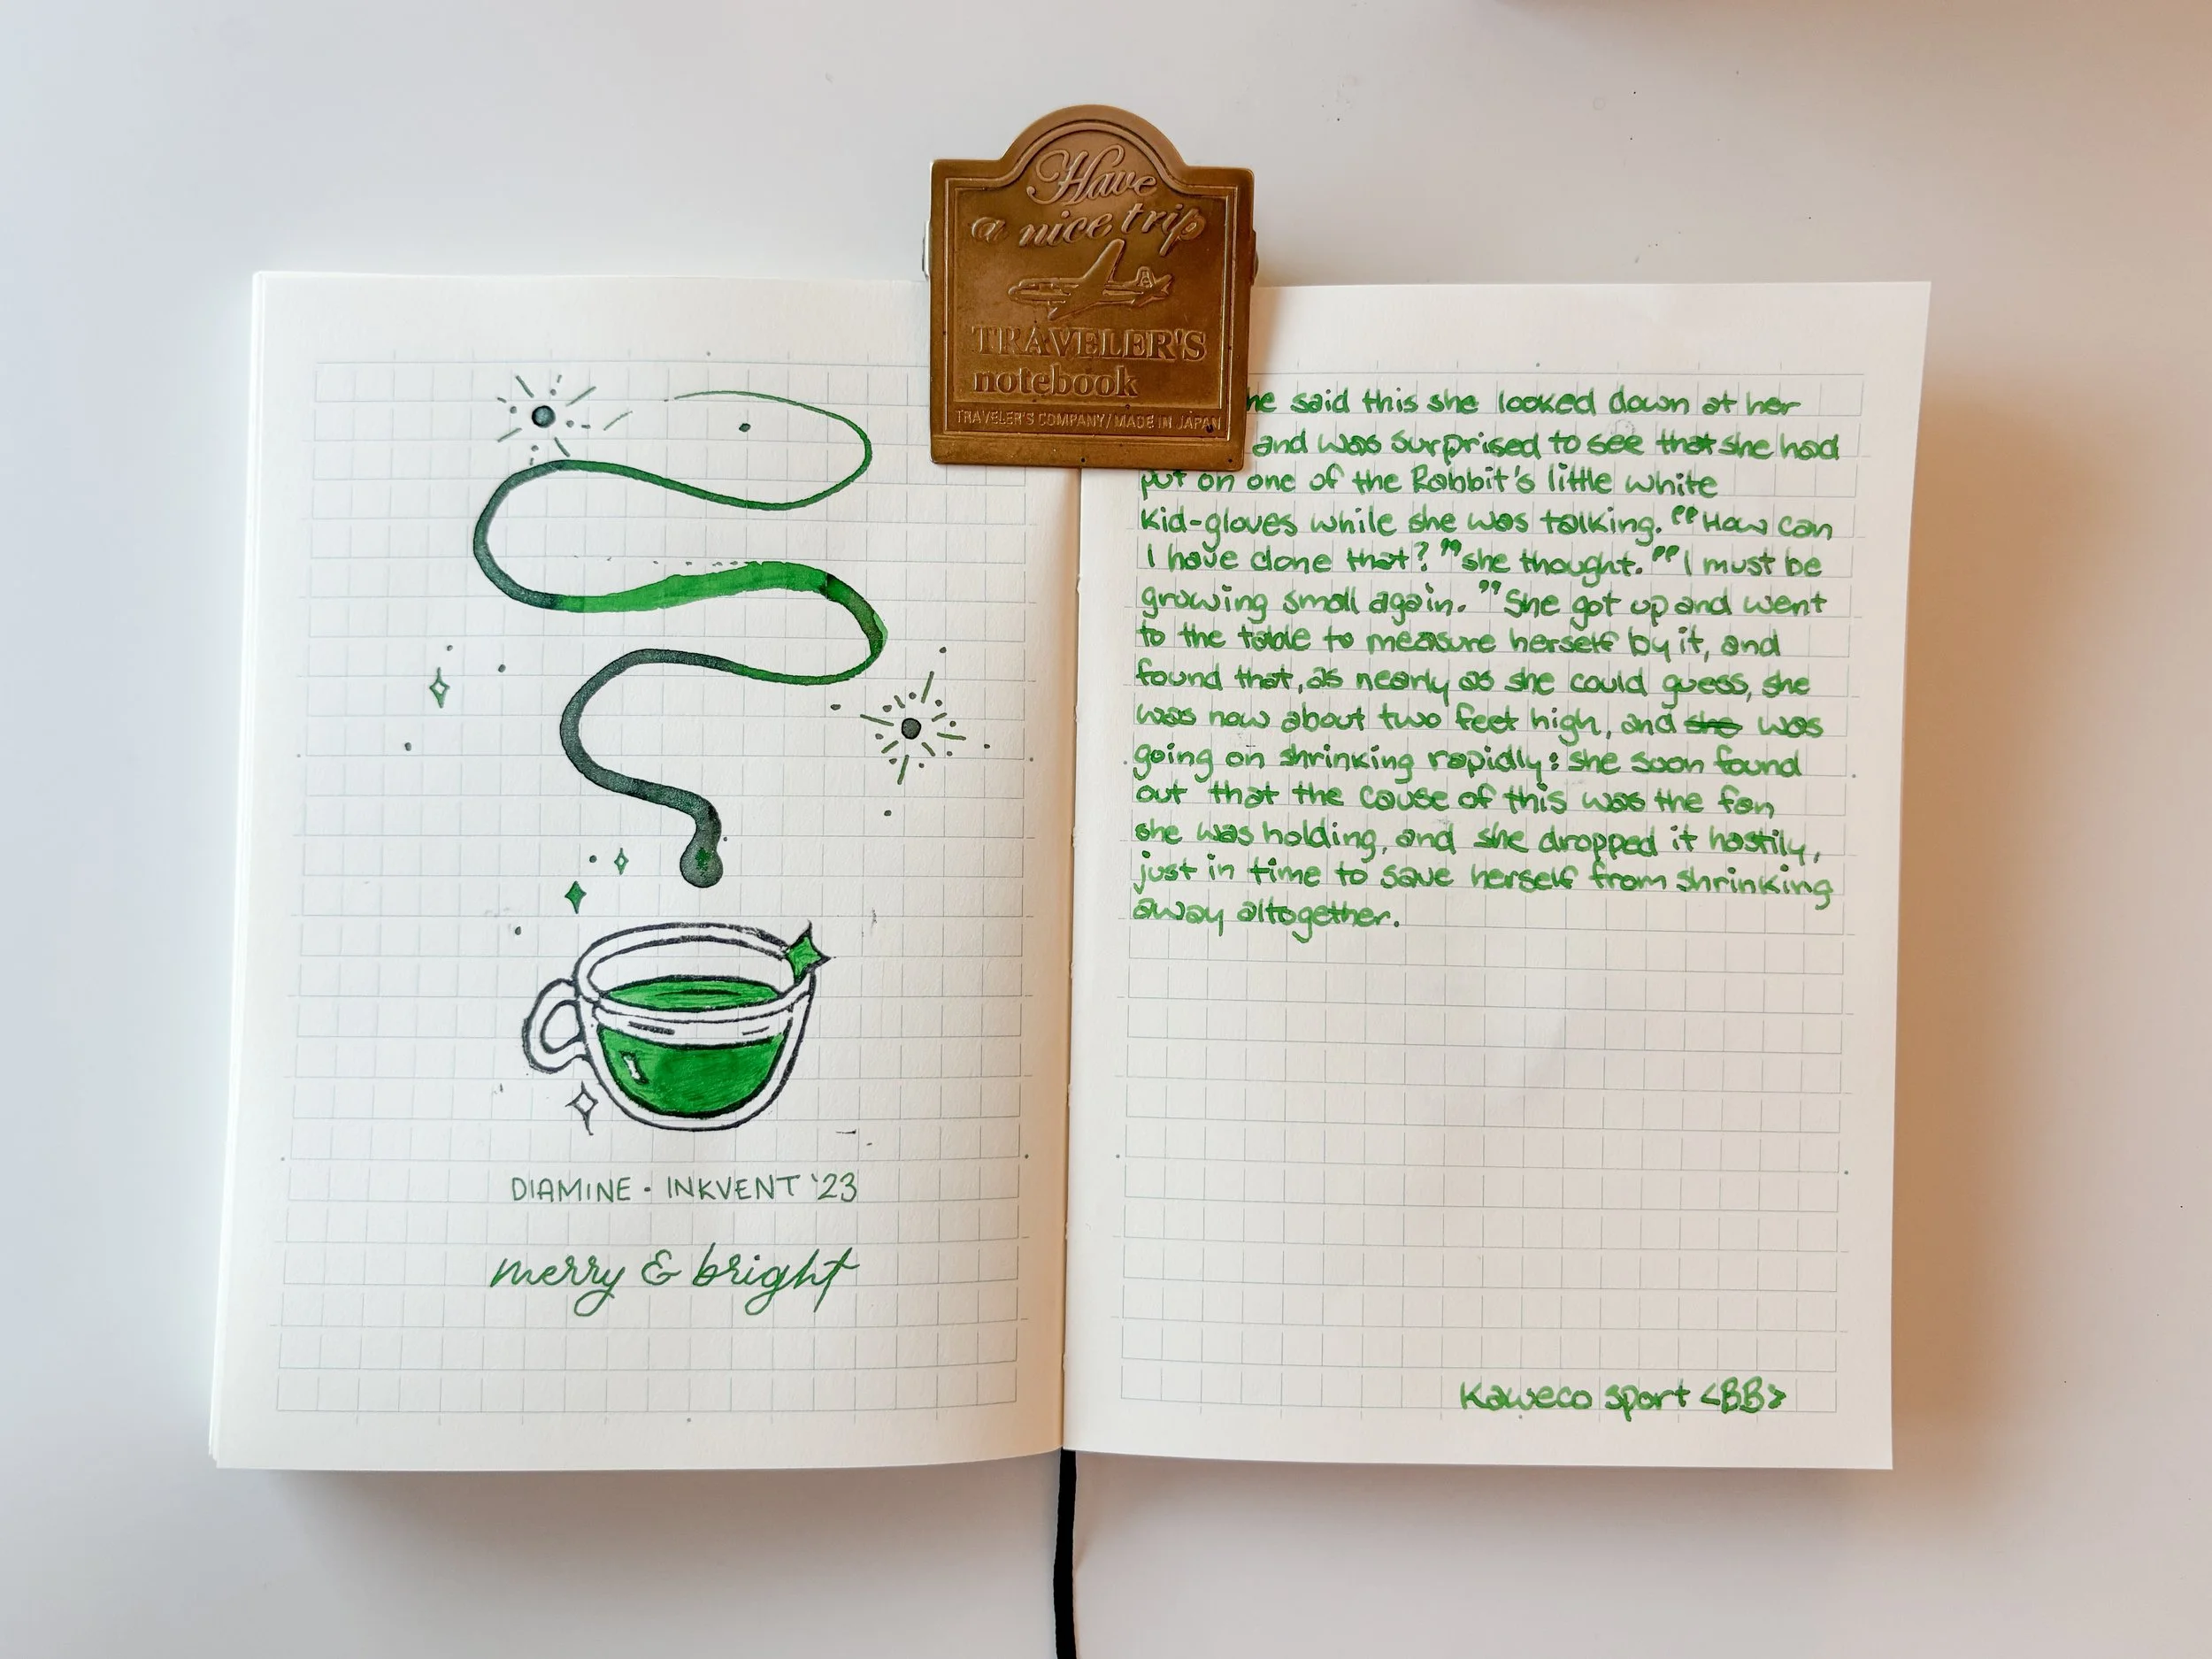 Have
a nice trip
TRAVELER'S
notebook
TRAVELER'S COMPANY/MADE IN JAPAN
DIAMINE · INKVENT '23
merry & bright
he said this she looked down at her
and was surprised to see that she had
put on one of the Rabbit's little white
kid-gloves while she was talking. "How can
I have done that?" she thought. "I must be
growing small again." She got up and went
to the table to measure herself by it, and
found that, as nearly as she could guess, she
was now about two feet high, and she was
going on shrinking rapidly: she soon found
out that the cause of this was the fan
she was holding, and she dropped it hastily,
just in time to save herself from shrinking
away altogether.
Kaweco Sport <BB>